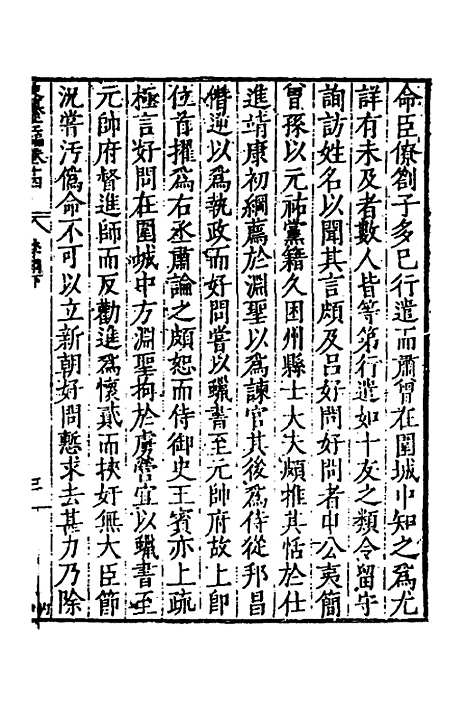 命臣僚劄子多已行遣而肅曾在圍城中知之爲尤
詳有未及者數人皆等第行遣如十友之類令留守
詢訪姓名以聞其言頗及呂好問好問者中公夷簡
曾孫以元祐黨籍久困州縣士大夫頗推其恬於仕
進靖康初綱薦於淵聖以爲諫官其後爲侍從邦昌
僭逆以爲執政而好問嘗以蠟書至元帥府故上即
位首擢爲右丞肅論之頗恕而侍御史王賓亦上疏
極言好問在圍城中方淵聖拘於虜營宜以蠟書至
元帥府督進師而反勸進爲懷貳而挾奸無大臣節
況嘗汚僞命不可以立新朝好問慙求去甚力乃除
三